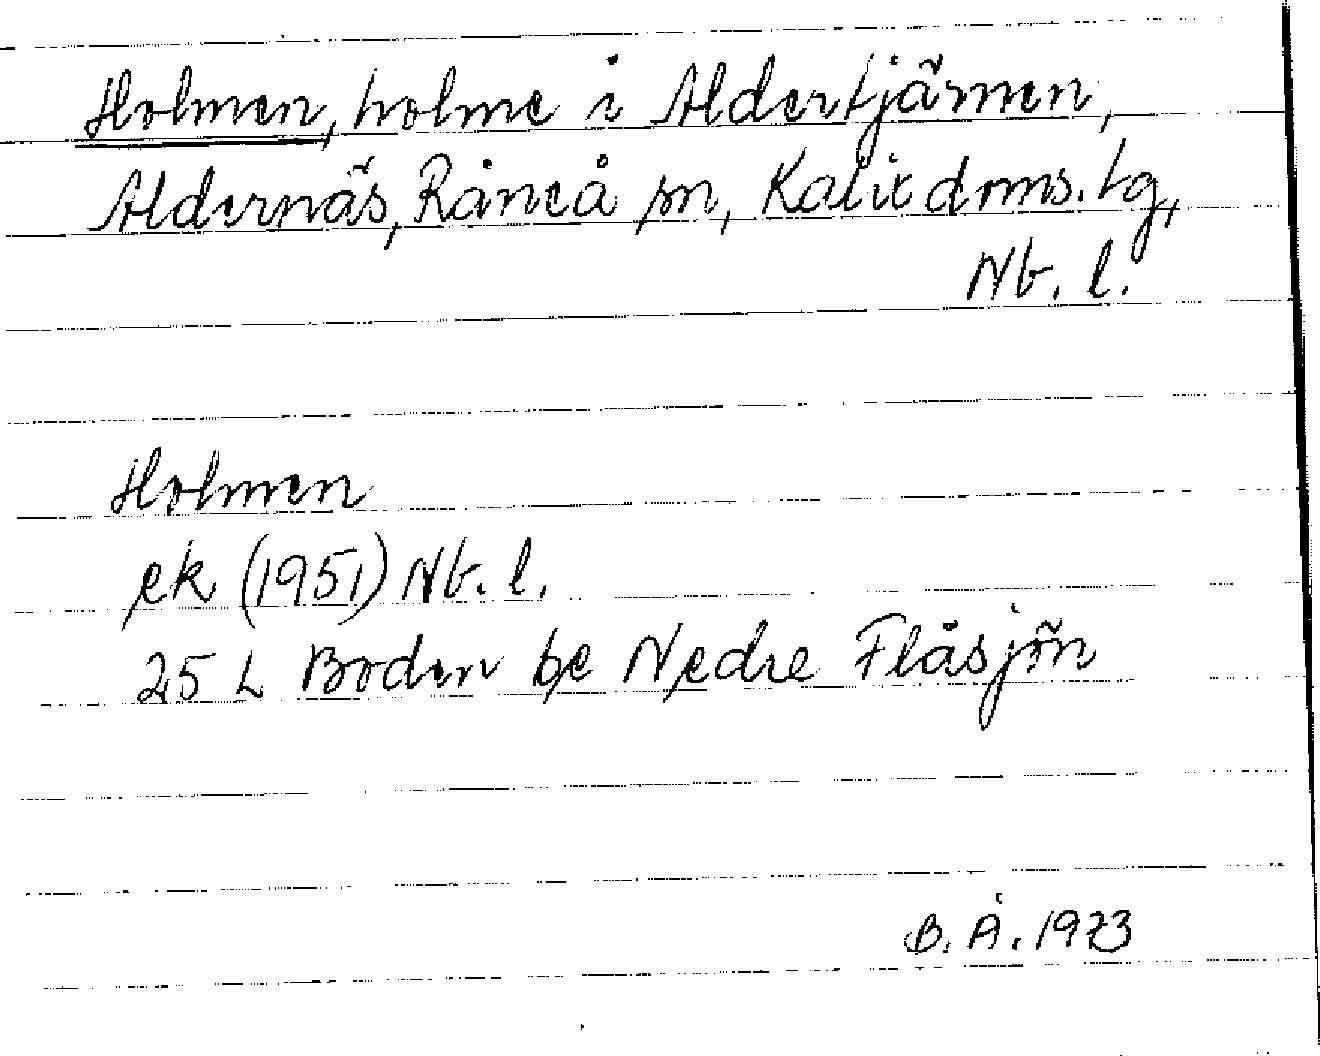 Holmen, holme i Aldertjärnen,
Aldernäs, Råneå sn, Kalix dms. tg,
Nb. l.
Holmen
ek (1951) Nb. l.
25 L Boden be Nedre Flåsjön
B. Å. 1973